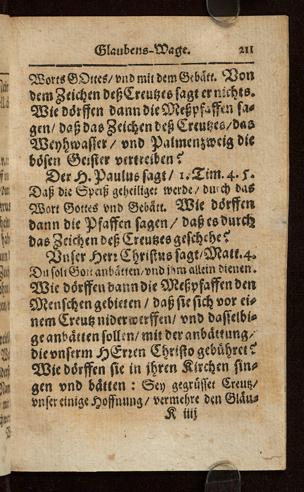 Glaubens-Wage. 211
Worts GOttes/ vnd mit dem Gebätt. Von
dem Zeichen deß Creutzes sagt er nichts.
Wie dörffen dann die Meßpfaffen sa-
gen/ daß das Zeichen deß Creutzes/ das
Weyhwasser/ vnd Palmenzweig die
bösen Geister vertreiben?
Der H. Paulus sagt/ 1. Tim. 4. 5.
Daß die Speiß geheiliget werde/ durch das
Wort Gottes vnd Gebätt. Wie dörffen
dann die Pfaffen sagen/ daß es durch
das Zeichen deß Creutzes geschehe?
Vnser Herr Christus sagt/ Matt. 4.
Du solt Gott anbätten/ vnd ihm allein dienen.
Wie dörffen dann die Meßpfaffen den
Menschen gebieten/ daß sie sich vor ei-
nem Creutz niderwerffen/ vnd dasselbi-
ge anbätten sollen/ mit der anbättung/
die vnserm HErren Christo gebühret?
Wie dörffen sie in ihren Kirchen sin-
gen vnd bätten: Sey gegrüsset Creutz/
vnser einige Hoffnung/ vermehre den Gläu-
K iiij